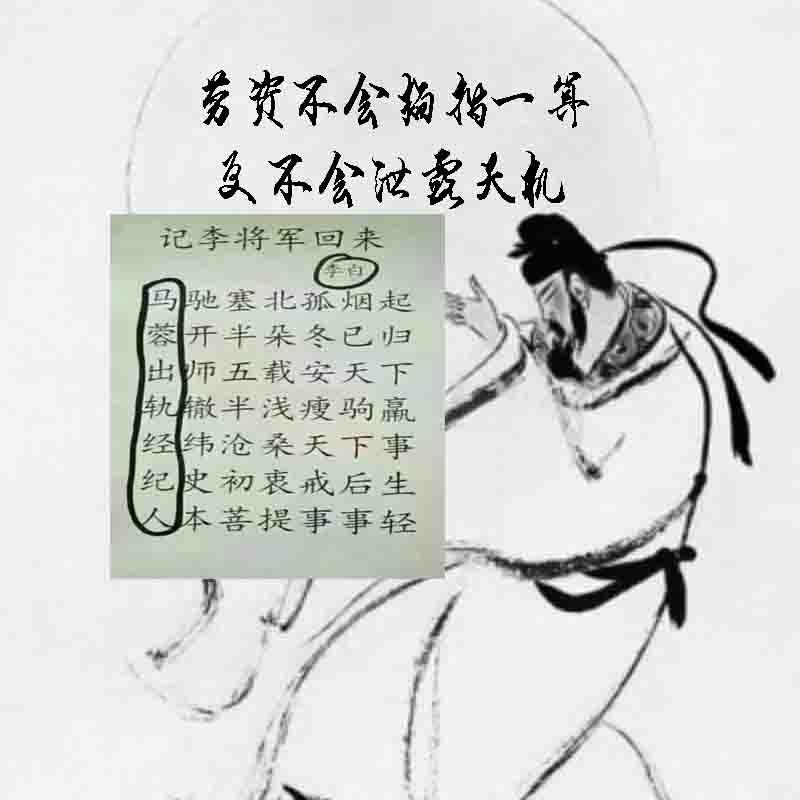 劳资不会掐指一算
更不会泄露天机
记李将军回来
李白
马驰塞北孤烟起
蓉开半朵冬已归
出师五载安天下
轨辙半浅瘦驹羸
经纬沧桑天下事
纪史初衷戒后生
人本菩提事事轻